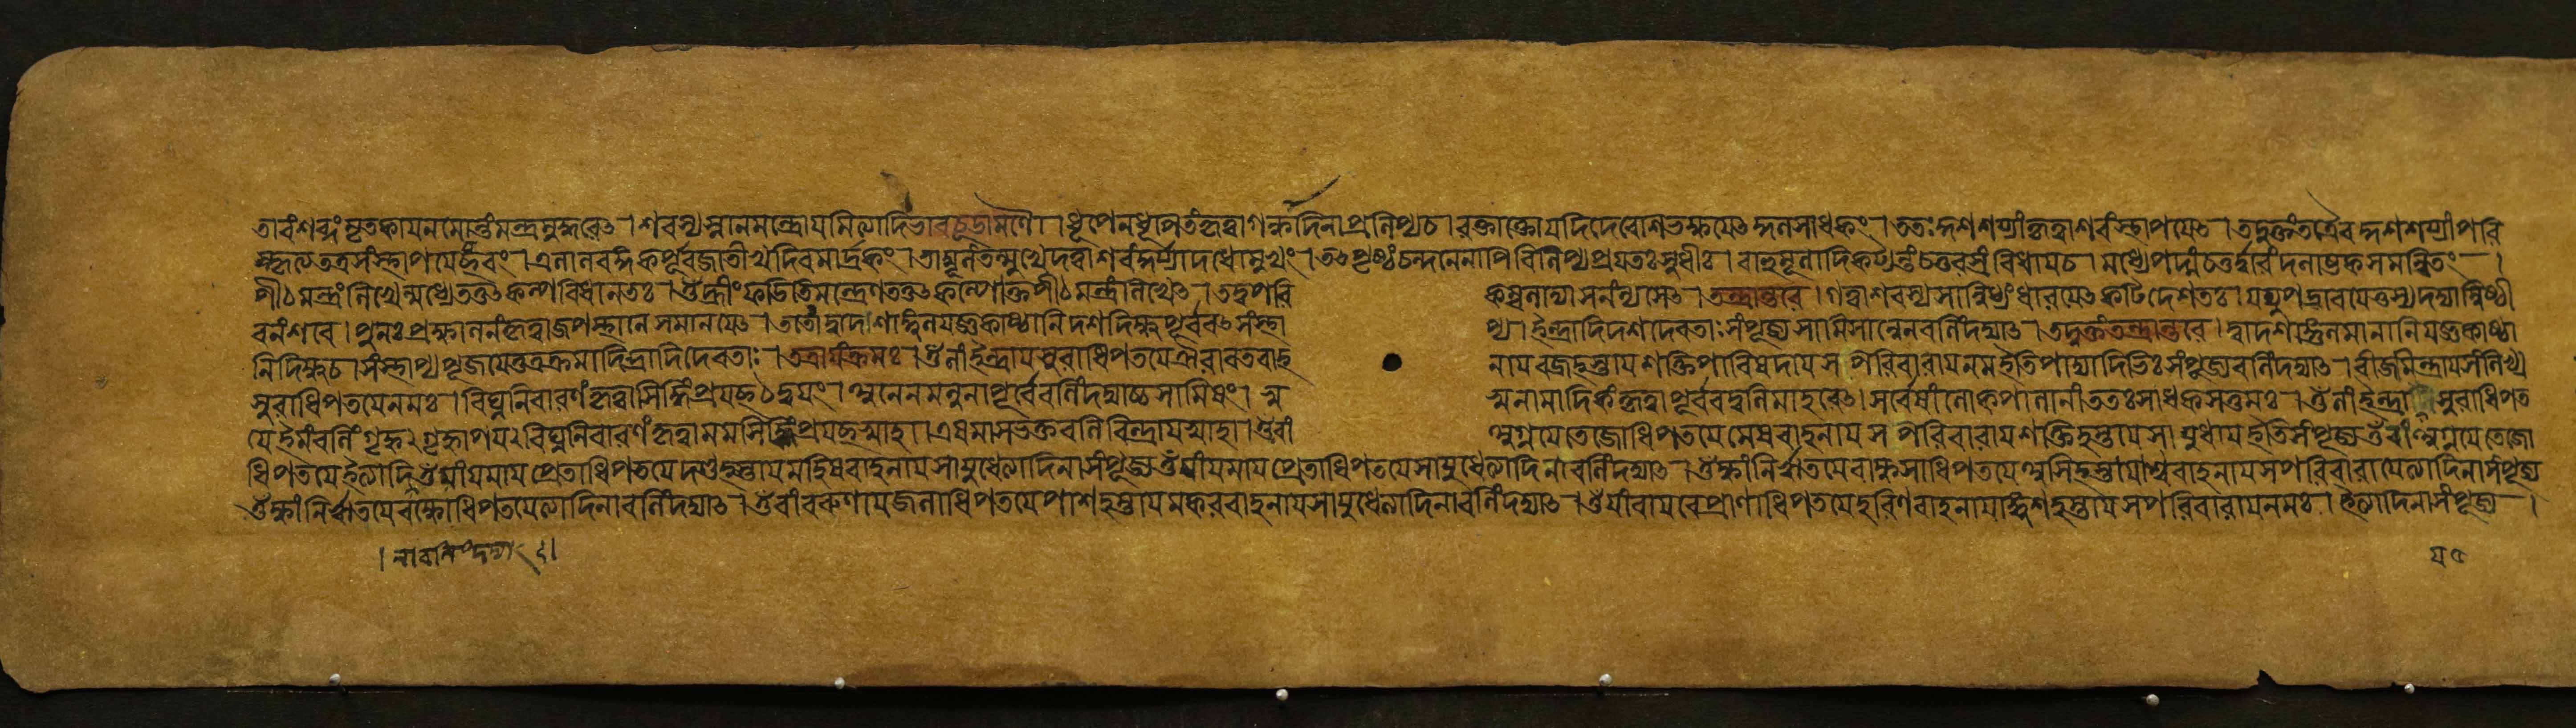 তারং শব্দং মৃতকায় নমোন্তং মন্ত্রমুচ্চরেৎ । শবস্য স্নানমন্ত্রোয়মিত্যাদি ভাবচূডামণৌ । ধূপেন ধূপিতং কৃত্বা গন্ধাদিনা প্রলিপ্য চ । রক্তাক্তো যদি দেবেশ ভক্ষয়েৎ কুলসাধকং । ততঃ কুশশয্যাং কৃত্বা শবং স্থাপয়েৎ । তদুক্তং তত্রৈব কুশশয্যাং পরি
স্কৃত্য তত্র সংস্থাপয়েচ্ছবং । এলালবঙ্গকর্পূরজাতীখদিরমার্দ্রকং । তাম্বূলং তন্মুখে দত্বা শবং কুর্য্যাদধোমুখং । তৎপৃষ্ঠং চন্দনেনাপি বিলিপ্য প্রযতঃ সুধীঃ । বাহুমূলাদিকট্যন্তং চতুরস্রং বিধায় চ । মধ্যে পদ্মং চতুর্দ্বারং দলাষ্টকসমন্বিতং ।
পীঠমন্ত্রং লিখেন্মধ্যে তত্তৎকল্পবিধানতঃ । ওঁ হ্রীং ফডিতি মন্ত্রেণ তত্তৎকল্পোক্তপীঠমন্ত্রং লিখেৎ । তদুপরি কম্বলাদ্যাসনং ন্যসেৎ । তন্ত্রান্তরে । গত্বা শবস্য সান্নিধ্যং ধারয়েৎ কটিদেশতঃ । যদ্যুপদ্রাবয়েত্তস্য দদ্যান্নিষ্ঠী
বনং শবে । পুনঃ প্রক্ষালনং কৃত্বা জপস্থানে সমানয়েৎ । ততো দ্বাদশাঙ্গুলযজ্ঞকাষ্ঠানি দশদিক্ষু পূর্ব্ববৎ সংস্থা প্য । ইন্দ্রাদিদশদেবতাঃ সংপূজ্য সামিষান্নেন বলিং দদ্যাৎ । তদুক্তং তন্ত্রান্তরে । দ্বাদশাঙ্গুলমানানি যজ্ঞকাষ্ঠা
নি দিক্ষু চ । সংস্থাপ্য পূজয়েত্তত্র ক্রমাদিন্দ্রাদিদেবতাঃ । তত্রায়ং ক্রমঃ । ওঁ লাং ইন্দ্রায় সুরাধিপতয়ে ঐরাবতবাহ নায় বজ্রহস্তায় শক্তিপারিষদায় সপরিবারায় নম ইতি পাদ্যাদিভিঃ সংপূজ্য বলিং দদ্যাৎ । বীজমিন্দ্রায় সংলিখ্য
সুরাধিপতয়ে নমঃ । বিঘ্ননিবারণং কৃত্বা সিদ্ধিং প্রযচ্ছ ঠদ্বয়ং । অনেন মনুনা পূর্ব্বে বলিং দদ্যাচ্চ সামিষং । স্ব স্বনামাদিকং কৃত্বা পূর্ব্ববদ্বলিমাহরেৎ । সর্ব্বেষাং লোকপালানাং ততঃ সাধকসত্তমঃ । ওঁ লাং ইন্দ্রায় সুরাধিপত
য়ে ইমং বলিং গৃহ্ন ২ গৃহ্নাপয় ২ বিঘ্ননিবারণং কৃত্বা মম সিদ্ধিং প্রযচ্ছ স্বাহা । এষ মাসভক্তবলিরিন্দ্রায় স্বাহা । ওঁ রাং অগ্নয়ে তেজোধিপতয়ে মেষবাহনায় সপরিবারায় শক্তিহস্তায় সায়ুধায় ইতি সংপূজ্য ওঁ রাং অগ্নয়ে তেজো
ধিপতয়ে ইত্যাদি ওঁ যাং যমায় প্রেতাধিপতয়ে দণ্ডহস্তায় মহিষবাহনায় সায়ুধেত্যাদিনা সংপূজ্য ওঁ যাং যমায় প্রেতাধিপতয়ে সায়ুধেত্যাদিনা বলিং দদ্যাৎ । ওঁ ক্ষাং নির্ঋতয়ে রাক্ষসাধিপতয়ে অসিহস্তায়াশ্ববাহনায় সপরিবারায়েত্যাদিনা সংপূজ্য
ওঁ ক্ষাং নির্ঋতয়ে রক্ষোধিপতয়েত্যাদিনা বলিং দদ্যাৎ । ওঁ বাং বরুণায় জলাধিপতয়ে পাশহস্তায় মকরবাহনায় সায়ুধেত্যাদিনা বলিং দদ্যাৎ । ওঁ যাং বায়বে প্রাণাধিপতয়ে হরিণবাহনায়াঙ্কুশহস্তায় সপরিবারায় নমঃ । ইত্যাদিনা সংপূজ্য ।